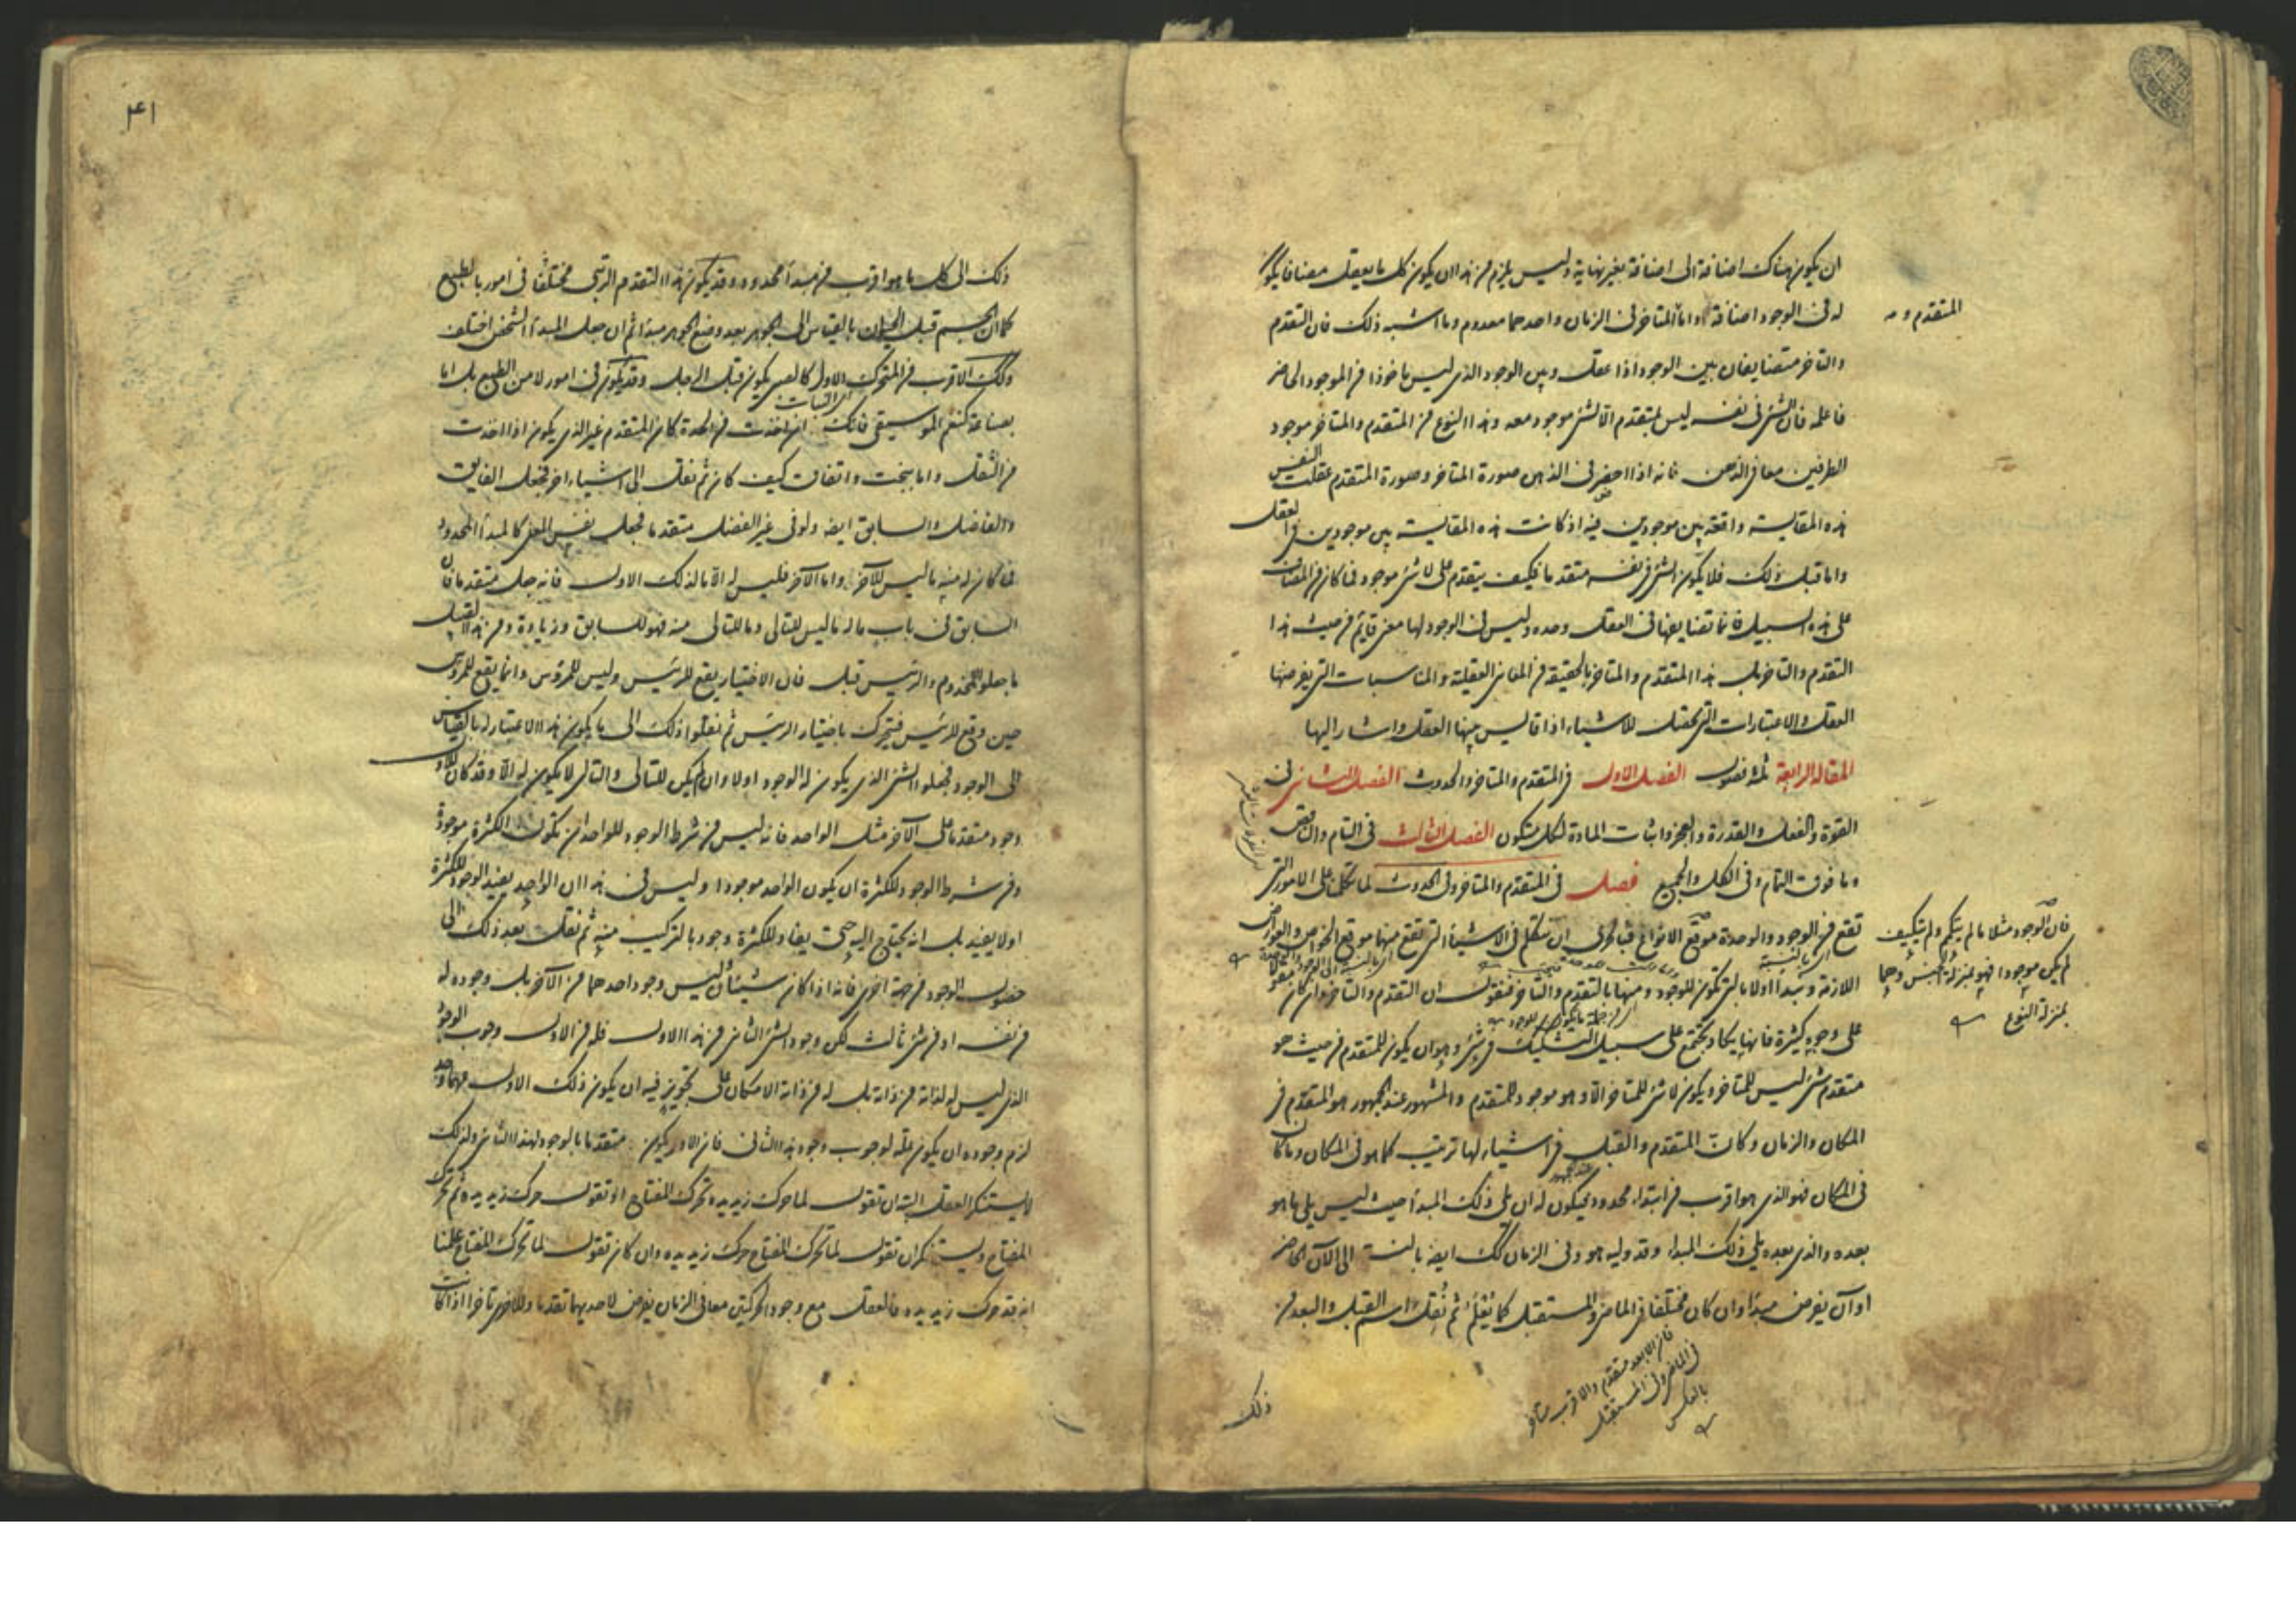 ان يكون هناك اضافة الى اضافة بغير نهاية وليس يلزم من هذا ان يكون كل ما يعقل مضافا يكون
له فى الوجود اضافة واما المتاخر فى الزمان واحدهما معدوم وما اشبه ذلك فان التقدم
المتقدم و
والتاخر متضايفان بين الوجود اذا عقل وبين الوجود الذى ليس ماخوذا من الموجود الخاص
فاعلمه فان الشئ فى نفسه ليس بمتقدم الا لشئ موجود معه وهذا النوع من المتقدم والمتاخر موجود
الطرفين معا فى الذهن فانه اذا احضر فى الذهن صورة المتاخر وصورة المتقدم عقلت النفس
هذه المقايسة واقعة بين موجودين فيه اذ كانت هذه المقايسة بين موجودين فى العقل
واما قبل ذلك فلا يكون الشئ فى نفسه متقدما فكيف يتقدم على لا شئ موجود فما كان من المضاف
على هذه السبيل فانما تضايفها فى العقل وحده وليس فى الوجود لها معنى قايم من حيث هذا
التقدم والتاخر بل هذا المتقدم والمتاخر بالحقيقة من المعانى العقلية والمناسبات التى يفرضها
العقل والاعتبارات التى تحصل للاشياء اذا قايس بينها العقل واشار اليها
المقالة الرابعة ثلثة فصول الفصل الاول فى المتقدم والمتاخر والحدوث الفصل الثانى فى
القوة والفعل والقدرة والعجز واثبات المادة لكل متكون الفصل الثالث فى التام والناقص
وما فوق التمام وفى الكل والجميع فصل فى المتقدم والمتاخر وفى الحدوث لما تكلمنا على الامور التى
تقع من الوجود والوحدة موقع الانواع فبالحرى ان نتكلم فى الاشياء التى تقع منها موقع الخواص والعوارض
اللازمة ونبدا اولا بالتى تكون للوجود ومنها بالتقدم والتاخر فنقول ان التقدم والتاخر وان كان مقولا
على وجوه كثيرة فانها يكاد يجتمع على سبيل التشكيك فى شئ وهو ان يكون للمتقدم من حيث هو
متقدم شئ ليس للمتاخر ويكون لا شئ للمتاخر الا وهو موجود للمتقدم والمشهور عند الجمهور هو المتقدم فى
المكان والزمان وكان المتقدم والقبل فى اشياء لها ترتيب كما هو فى المكان وما كان
فى المكان فهو الذى هو اقرب من ابتداء محدود فيكون له ان يلى ذلك المبدأ حيث ليس يلى ما هو
بعده والذى بعده يلى ذلك المبداء وقد وليه هو وفى الزمان كك ايضا بالنسبة الى الآن الحاضر
او آن يفرض مبدأ وان كان مختلفا فى الماضى والمستقبل كما يعلم ثم نقل اسم القبل والبعد من
فان الوجود مثلا ما لم يتكمم ولم يتكيف
لم يكن موجودا فهو بمنزلة الجنس وهما
بمنزلة النوع
فان الابعد متقدم والاقرب متاخر
فى الماضى وفى المستقبل
بالعكس
ذلك
۴۱
ذلك الى كل ما هو اقرب من مبدأ محدود وقد يكون هذا التقدم الرتبى مختلفا فى امور بالطبع
كما ان الجسم قبل الحيوان بالقياس الى الجوهر بعد وضع الجوهر مبدأ ثم ان جعل المبدأ الشخص اختلف
وكك الاقرب من المتحرك الاول كالصبى يكون قبل الرجل وقد يكون فى امور لا من الطبع بل اما
بصناعة كنغم الموسيقى فانك ان اخذت من الحدة كان المتقدم غير الذى يكون اذا اخذت
من الثقل واما ببخت واتفاق كيف كان ثم نقل الى اشياء اخر فجعل الفايق
والفاضل والسابق ايضا ولو فى غير الفضل متقدما فجعل نفس المعنى كالمبدأ المحدود
فما كان له منه ما ليس للآخر واما الآخر فليس له الا ما لذلك الاول فانه جعل متقدما فان
السابق فى باب ما له ما ليس للتالى وما للتالى منه فهو للسابق وزيادة ومن هذا القبيل
ما جعلوا المخدوم والرئيس قبل فان الاختيار يقع للرئيس وليس للمرؤس وانما يقع للمرؤس
حين وقع للرئيس فيتحرك باختيار الرئيس ثم نقلوا ذلك الى ما يكون هذا الاعتبار له بالقياس
الى الوجود فجعلوا الشئ الذى يكون له الوجود اولا وان لم يكن للثانى والثانى لا يكون له الا وقد كان للاول
وجود متقدما على الآخر مثل الواحد فانه ليس من شرط الوجود للواحد ان تكون الكثرة موجودة
ومن شرط الوجود للكثرة ان يكون الواحد موجودا وليس فى هذا ان الواحد يفيد الوجود للكثرة
اولا يفيد بل انه يحتاج اليه حتى يفاد للكثرة وجود بالتركيب منه ثم نقل بعد ذلك الى
حصول الوجود من جهة اخرى فانه اذا كان شيئان ليس وجود احدهما من الآخر بل وجوده له
من نفسه او من شئ ثالث لكن وجود الشئ الثانى من هذا الاول فله من الاول وجوب الوجود
الذى ليس له لذاته من ذاته بل له من ذاته الامكان على تجويز فيه ان يكون ذلك الاول مهما وجد
لزم وجوده ان يكون علة لوجوب وجود هذا الثانى فان الاول يكون متقدما بالوجود لهذا الثانى ولذلك
لا يستنكر العقل البتة ان تقول لما حرك زيد يده تحرك المفتاح او تقول حرك زيد يده ثم تحرك
المفتاح ويستنكر ان تقول لما تحرك المفتاح حرك زيد يده وان كان تقول لما تحرك المفتاح علمنا
انه قد حرك زيد يده فالعقل مع وجود الحركتين معا فى الزمان يفرض لاحديهما تقدما وللاخرى تاخرا اذ كانت